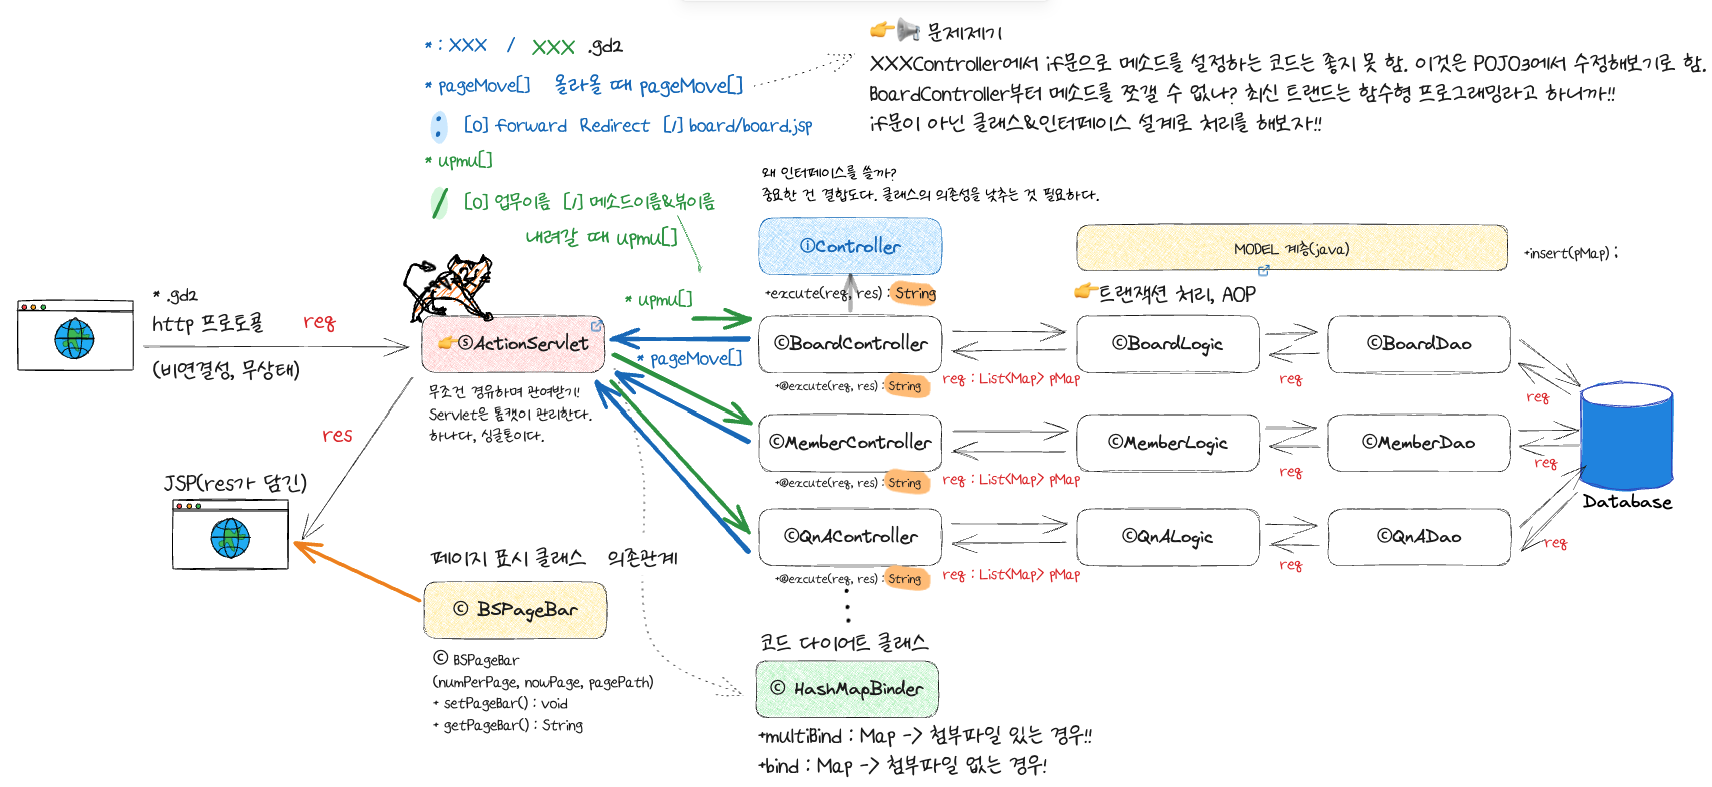 * : XXX / XXX .gd2
* pageMove[] 올라올 때 pageMove[]
: [0] forward Redirect [1] board/board.jsp
* upmu[]
/ [0] 업무이름 [1] 메소드이름&뷰이름
내려갈 때 upmu[]
문제제기
XXXController에서 if문으로 메소드를 설정하는 코드는 좋지 못 함. 이것은 POJO3에서 수정해보기로 함.
BoardController부터 메소드를 쪼갤 수 없나? 최신 트랜드는 함수형 프로그래밍라고 하니까!!
if문이 아닌 클래스&인터페이스 설계로 처리를 해보자!!
왜 인터페이스를 쓸까?
중요한 건 결합도다. 클래스의 의존성을 낮추는 것 필요하다.
ⓘController
+excute(req, res) : String
MODEL 계층(java)
+insert(pMap);
트랜잭션 처리, AOP
* .gd2
http 프로토콜
req
(비연결성, 무상태)
ⓢActionServlet
무조건 경유하며 관여받기!
Servlet은 톰캣이 관리한다.
하나다, 싱글톤이다.
* upmu[]
* pageMove[]
ⓒBoardController
+@execute(req, res) : String
req : List<Map> pMap
ⓒBoardLogic
req
ⓒBoardDao
req
ⓒMemberController
+@execute(req, res) : String
req : List<Map> pMap
ⓒMemberLogic
req
ⓒMemberDao
req
ⓒQnAController
+@execute(req, res) : String
req : List<Map> pMap
ⓒQnALogic
req
ⓒQnADao
req
Database
res
JSP(res가 담긴)
페이지 표시 클래스
의존관계
ⓒ BSPageBar
ⓒ BSPageBar
(numPerPage, nowPage, pagePath)
+ setPageBar() : void
+ getPageBar() : String
코드 다이어트 클래스
ⓒ HashMapBinder
+multiBind : Map -> 첨부파일 있는 경우!!
+bind : Map -> 첨부파일 없는 경우!